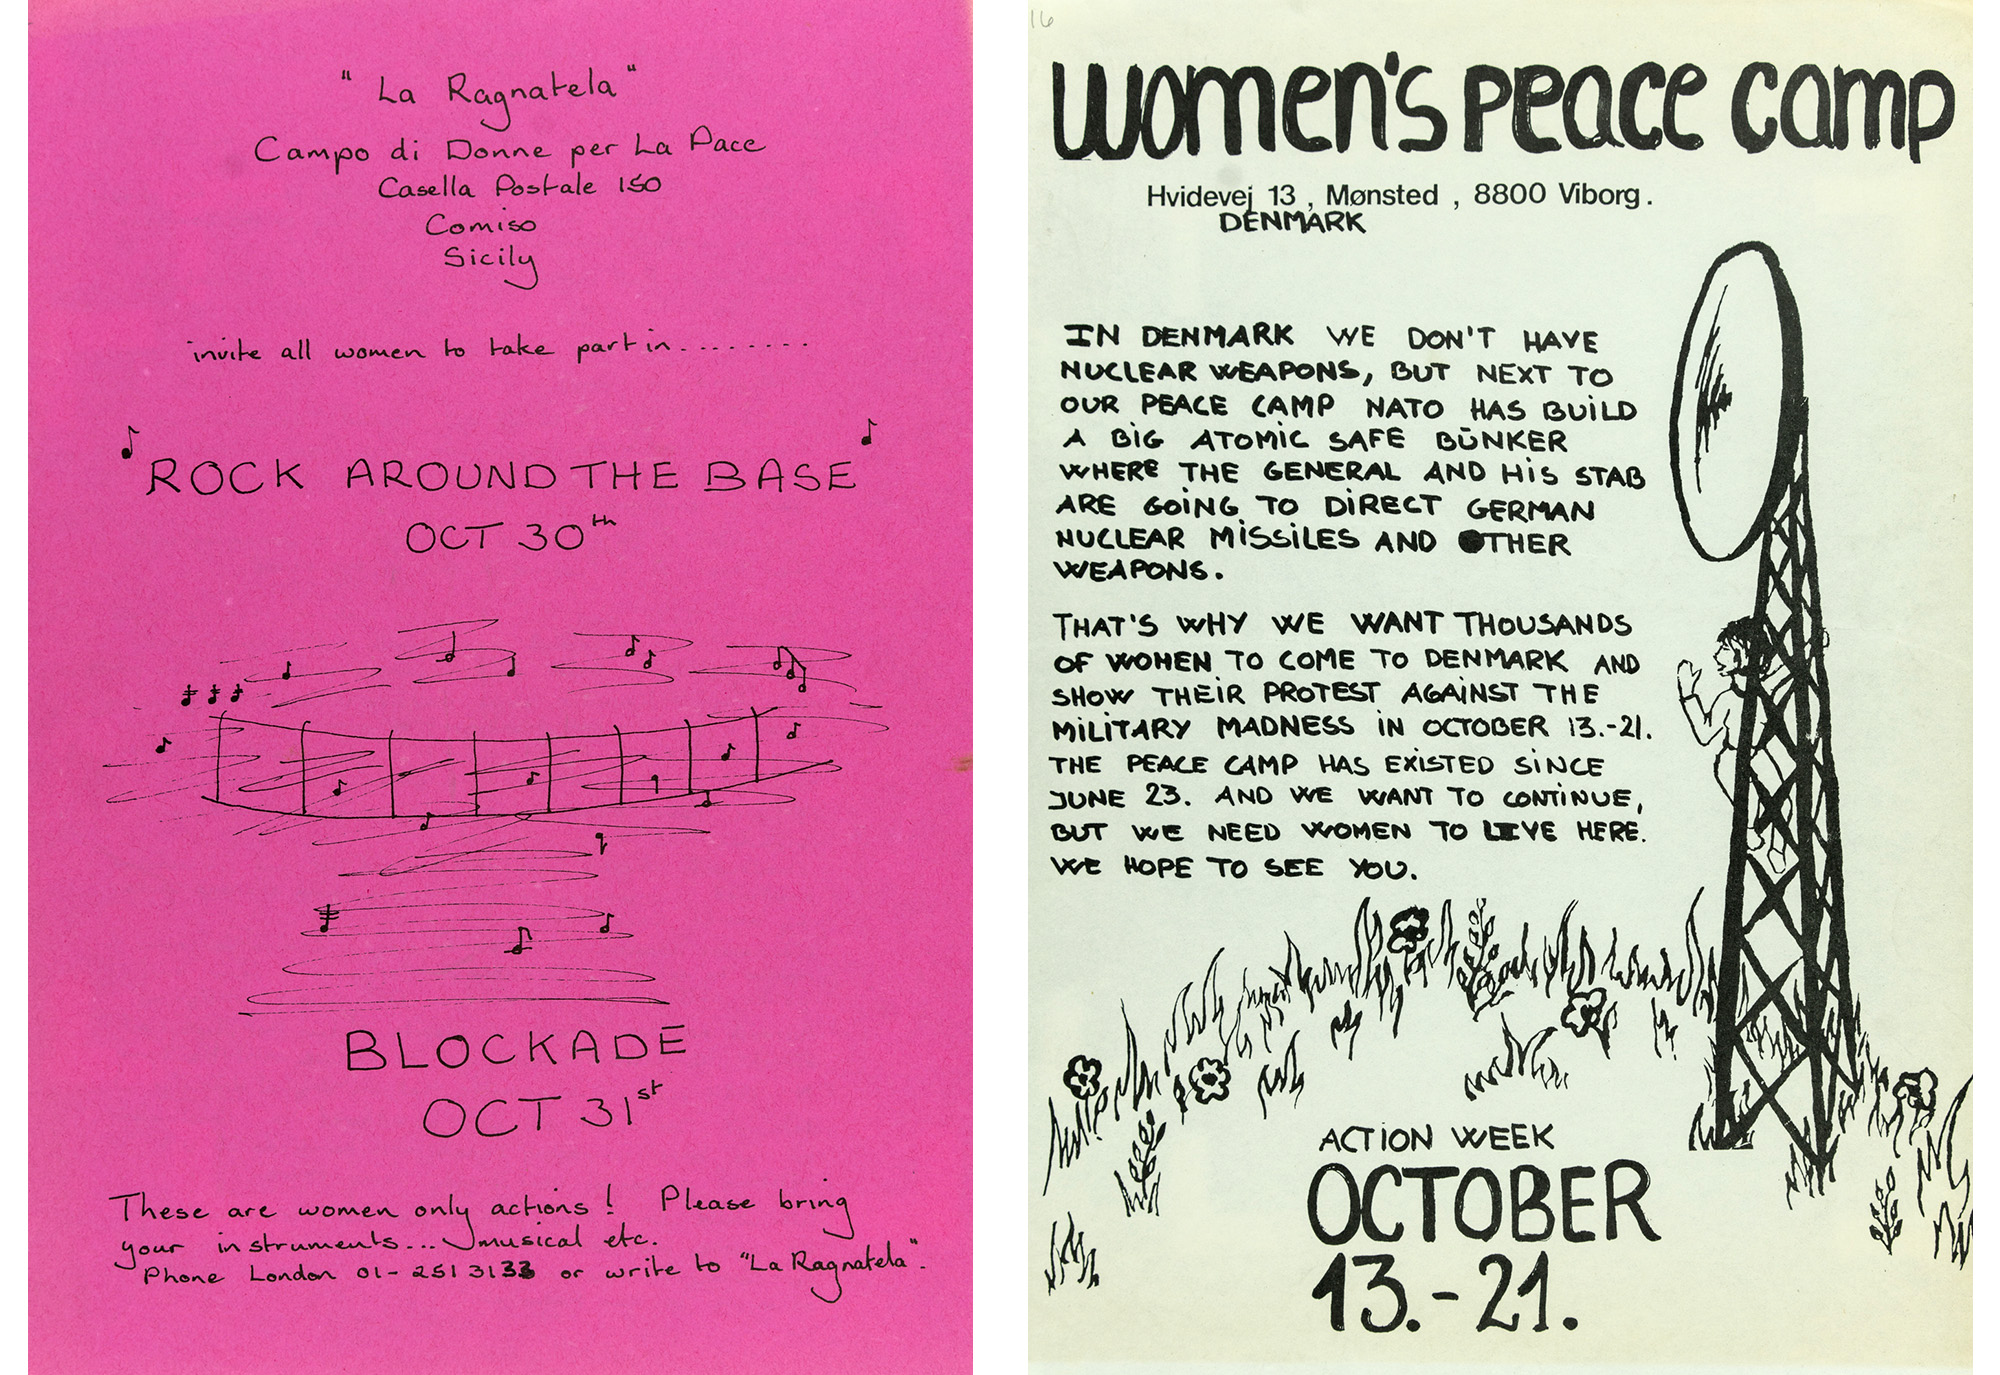 "La Ragnatela"
Campo di Donne per La Pace
Casella Postale 150
Comiso
Sicily
invite all women to take part in.........
ROCK AROUND THE BASE
OCT 30th
BLOCKADE
OCT 31st
These are women only actions! Please bring
your instruments... musical etc.
Phone London 01-251 3133 or write to "La Ragnatela".
16
women's peace camp
Hvidevej 13, Mønsted, 8800 Viborg.
DENMARK
IN DENMARK WE DON'T HAVE
NUCLEAR WEAPONS, BUT NEXT TO
OUR PEACE CAMP NATO HAS BUILD
A BIG ATOMIC SAFE BUNKER
WHERE THE GENERAL AND HIS STAB
ARE GOING TO DIRECT GERMAN
NUCLEAR MISSILES AND OTHER
WEAPONS.
THAT'S WHY WE WANT THOUSANDS
OF WOMEN TO COME TO DENMARK AND
SHOW THEIR PROTEST AGAINST THE
MILITARY MADNESS IN OCTOBER 13.-21.
THE PEACE CAMP HAS EXISTED SINCE
JUNE 23. AND WE WANT TO CONTINUE,
BUT WE NEED WOMEN TO LIVE HERE.
WE HOPE TO SEE YOU.
ACTION WEEK
OCTOBER
13.-21.